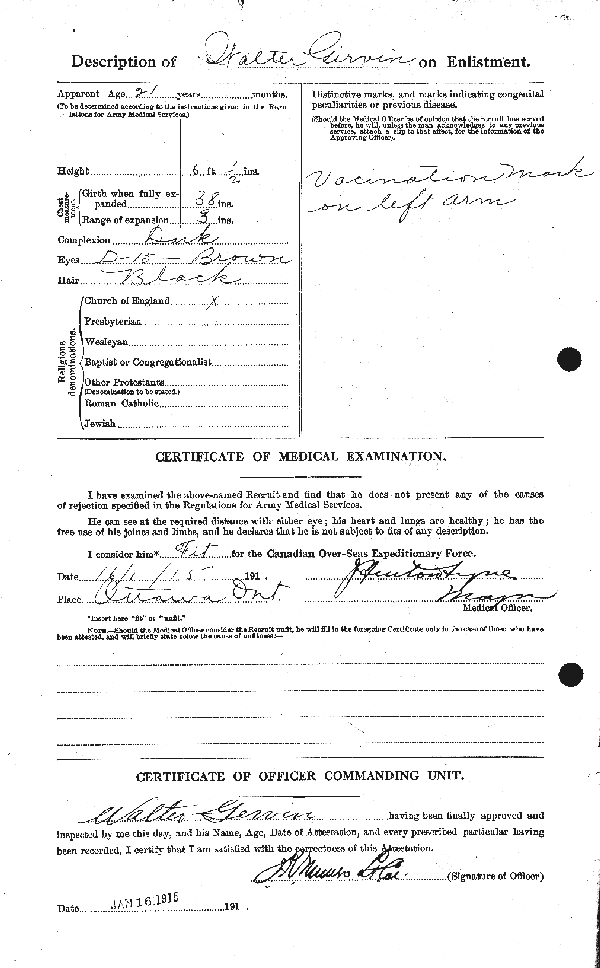 Description of Walter Girvin on Enlistment.
Apparent Age 21 years months.
(To be determined according to the instructions given in the Regulations for Army Medical Services.)
Height 6 ft. 1/2 ins.
Chest measurement
Girth when fully expanded 38 ins.
Range of expansion 3 ins.
Complexion Dark
Eyes D-15 - Brown
Hair Black
Religious denominations.
Church of England X
Presbyterian
Wesleyan
Baptist or Congregationalist
Other Protestants
(Denomination to be stated.)
Roman Catholic
Jewish
Distinctive marks, and marks indicating congenital
peculiarities or previous disease.
(Should the Medical Officer be of opinion that the recruit has served
before, he will, unless the man acknowledges to any previous
service, attach a slip to that effect, for the information of the
Approving Officer).
Vacination Mark
on left arm
CERTIFICATE OF MEDICAL EXAMINATION.
I have examined the above-named Recruit and find that he does not present any of the causes
of rejection specified in the Regulations for Army Medical Services.
He can see at the required distance with either eye; his heart and lungs are healthy; he has the
free use of his joints and limbs, and he declares that he is not subject to fits of any description.
I consider him* Fit for the Canadian Over-Seas Expeditionary Force.
Date 16/1/15 191 .
Place Ottawa Ont
Major
Medical Officer.
*Insert here "fit" or "unfit."
NOTE.—Should the Medical Officer consider the Recruit unfit, he will fill in the foregoing Certificate only in the case of those who have
been attested, and will briefly state below the cause of unfitness:—
CERTIFICATE OF OFFICER COMMANDING UNIT.
Walter Girvin having been finally approved and
inspected by me this day, and his Name, Age, Date of Attestation, and every prescribed particular having
been recorded, I certify that I am satisfied with the correctness of this Attestation.
(Signature of Officer)
Date JAN 16 1915 191 .